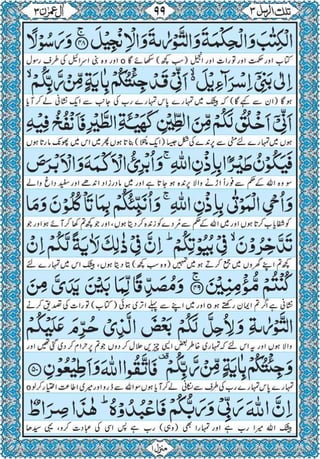 تلك الرسل ٣ ٩٩ اٰل عمرٰن ٣
الْكِتٰبَ وَالْحِكْمَةَ وَالتَّوْرٰىةَ وَالْاِنْجِيْلَ ﴿٤٨﴾ وَرَسُوْلًا
کتاب اور حکمت اور تورات اور انجیل (سب کچھ) سکھائے گا o اور وہ بنی اسرائیل کی طرف رسول
اِلٰى بَنِيْٓ اِسْرَآءِيْلَ ۙ اَنِّيْ قَدْ جِئْتُكُمْ بِاٰيَةٍ مِّنْ رَّبِّكُمْ ۙ
ہو گا (ان سے کہے گا) کہ بیشک میں تمہارے پاس تمہارے رب کی جانب سے ایک نشانی لے کر آیا
اَنِّيْٓ اَخْلُقُ لَكُمْ مِّنَ الطِّيْنِ كَهَيْـَٔةِ الطَّيْرِ فَاَنْفُخُ فِيْهِ
ہوں میں تمہارے لئے مٹی سے پرندے کی شکل جیسا (ایک پتلا) بناتا ہوں پھر میں اس میں پھونک مارتا ہوں
فَيَكُوْنُ طَيْرًۢا بِاِذْنِ اللّٰهِ ۚ وَاُبْرِئُ الْاَكْمَهَ وَالْاَبْرَصَ
سو وہ اللہ کے حکم سے فوراً اڑنے والا پرندہ ہو جاتا ہے اور میں مادرزاد اندھے اور سفید داغ والے
وَاُحْيِ الْمَوْتٰى بِاِذْنِ اللّٰهِ ۚ وَاُنَبِّئُكُمْ بِمَا تَاْكُلُوْنَ وَمَا
کو شفایاب کرتا ہوں اور میں اللہ کے حکم سے مردے کو زندہ کر دیتا ہوں، اور جو کچھ تم کھا کر آئے ہو اور جو
تَدَّخِرُوْنَ ۙ فِيْ بُيُوْتِكُمْ ۭ اِنَّ فِيْ ذٰلِكَ لَاٰيَةً لَّكُمْ اِنْ
کچھ تم اپنے گھروں میں جمع کرتے ہو میں تمہیں (وہ سب کچھ) بتا دیتا ہوں، بیشک اس میں تمہارے لئے
كُنْتُمْ مُّؤْمِنِيْنَ ﴿٤٩﴾ وَمُصَدِّقًا لِّمَا بَيْنَ يَدَيَّ مِنَ
نشانی ہے اگر تم ایمان رکھتے ہو o اور میں اپنے سے پہلے اتری ہوئی (کتاب) تورات کی تصدیق کرنے
التَّوْرٰىةِ وَلِاُحِلَّ لَكُمْ بَعْضَ الَّذِيْ حُرِّمَ عَلَيْكُمْ
والا ہوں اور یہ اس لئے کہ تمہاری خاطر بعض ایسی چیزیں حلال کر دوں جو تم پر حرام کر دی گئی تھیں اور
وَجِئْتُكُمْ بِاٰيَةٍ مِّنْ رَّبِّكُمْ ۟ فَاتَّقُوا اللّٰهَ وَاَطِيْعُوْنِ ﴿٥٠﴾
تمہارے پاس تمہارے رب کی طرف سے نشانی لے کر آیا ہوں سو اللہ سے ڈرو اور میری اطاعت اختیار کر لو o
اِنَّ اللّٰهَ رَبِّيْ وَرَبُّكُمْ فَاعْبُدُوْهُ ۭ هٰذَا صِرَاطٌ
بیشک اللہ میرا رب ہے اور تمہارا بھی (وہی) رب ہے پس اسی کی عبادت کرو، یہی سیدھا
منزل ١